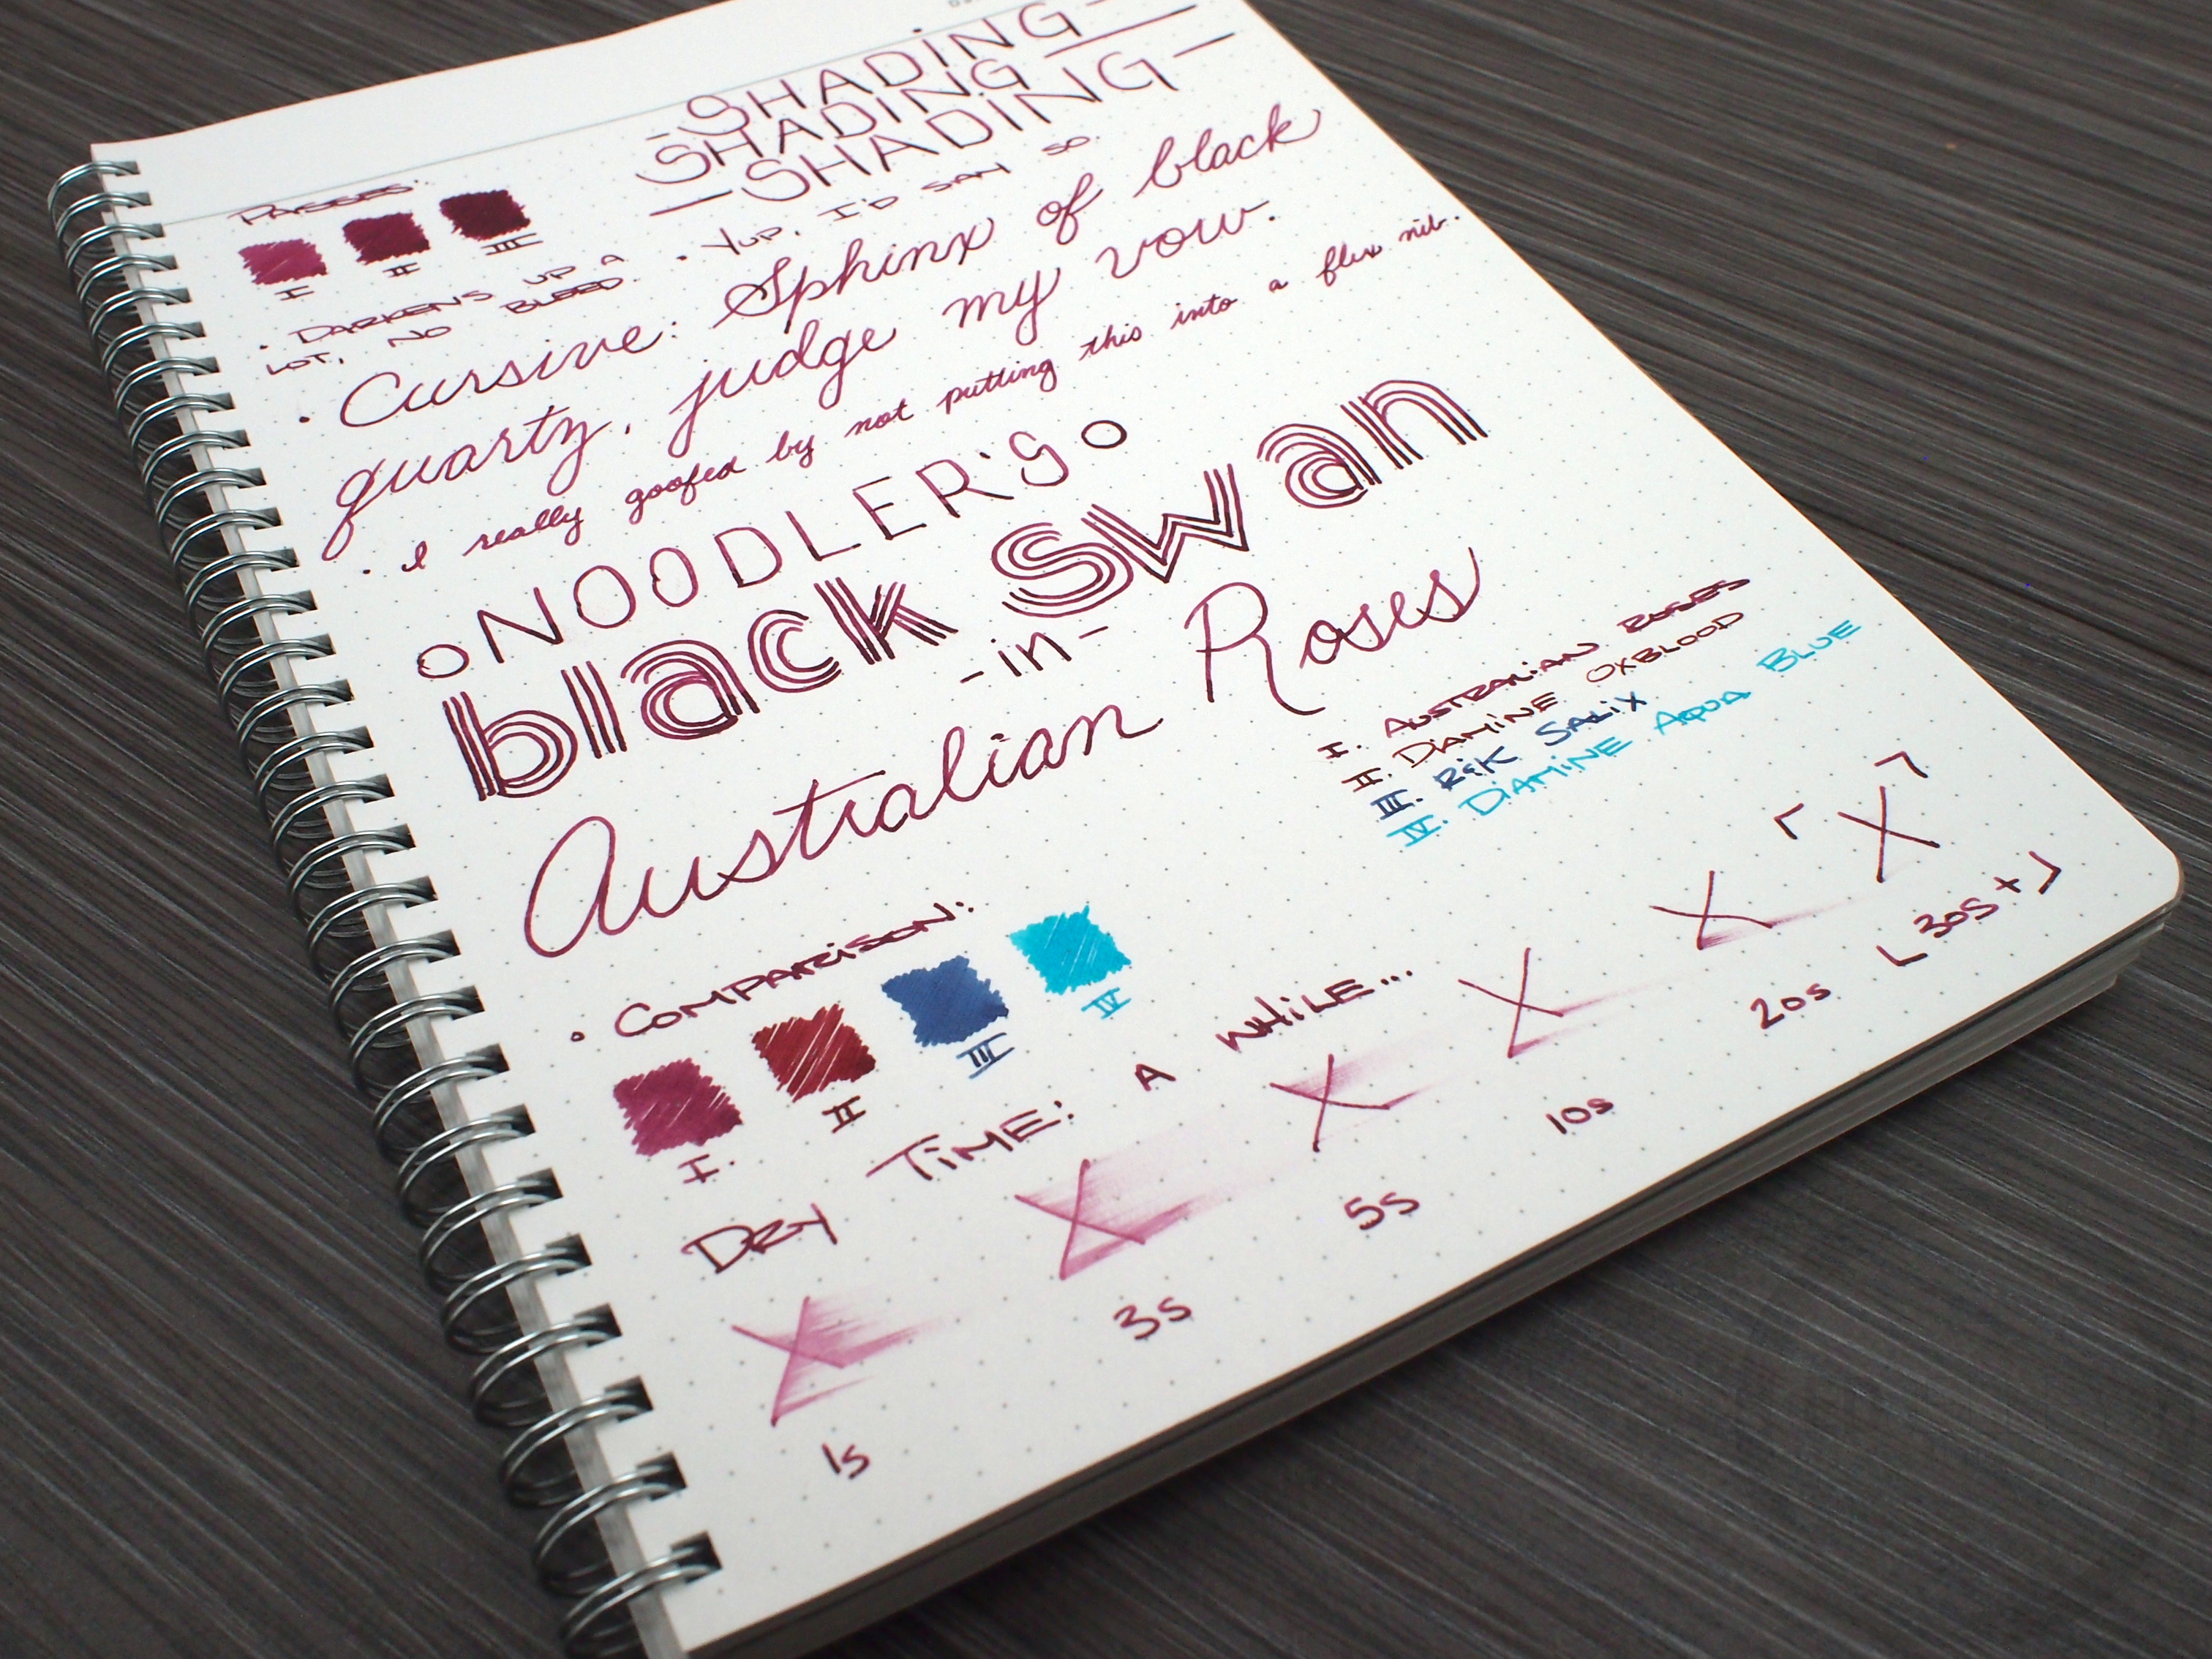 -SHADING-
SHADING
-SHADING-
• YUP, I'D SAY SO.
PASSES:
I II III
• DARKENS UP A
LOT, NO BLEED.
• Cursive: Sphinx of black
quartz, judge my vow.
• I really goofed by not putting this into a flex nib.
NOODLER'S
black swan
-in-
Australian Roses
I. AUSTRALIAN ROSES
II. DIAMINE OXBLOOD
III. R&K SALIX
IV. DIAMINE AQUA BLUE
• COMPARISON:
I. II III IV
DRY TIME: A WHILE...
X X X X X X
1s 3s 5s 10s 20s 30s+